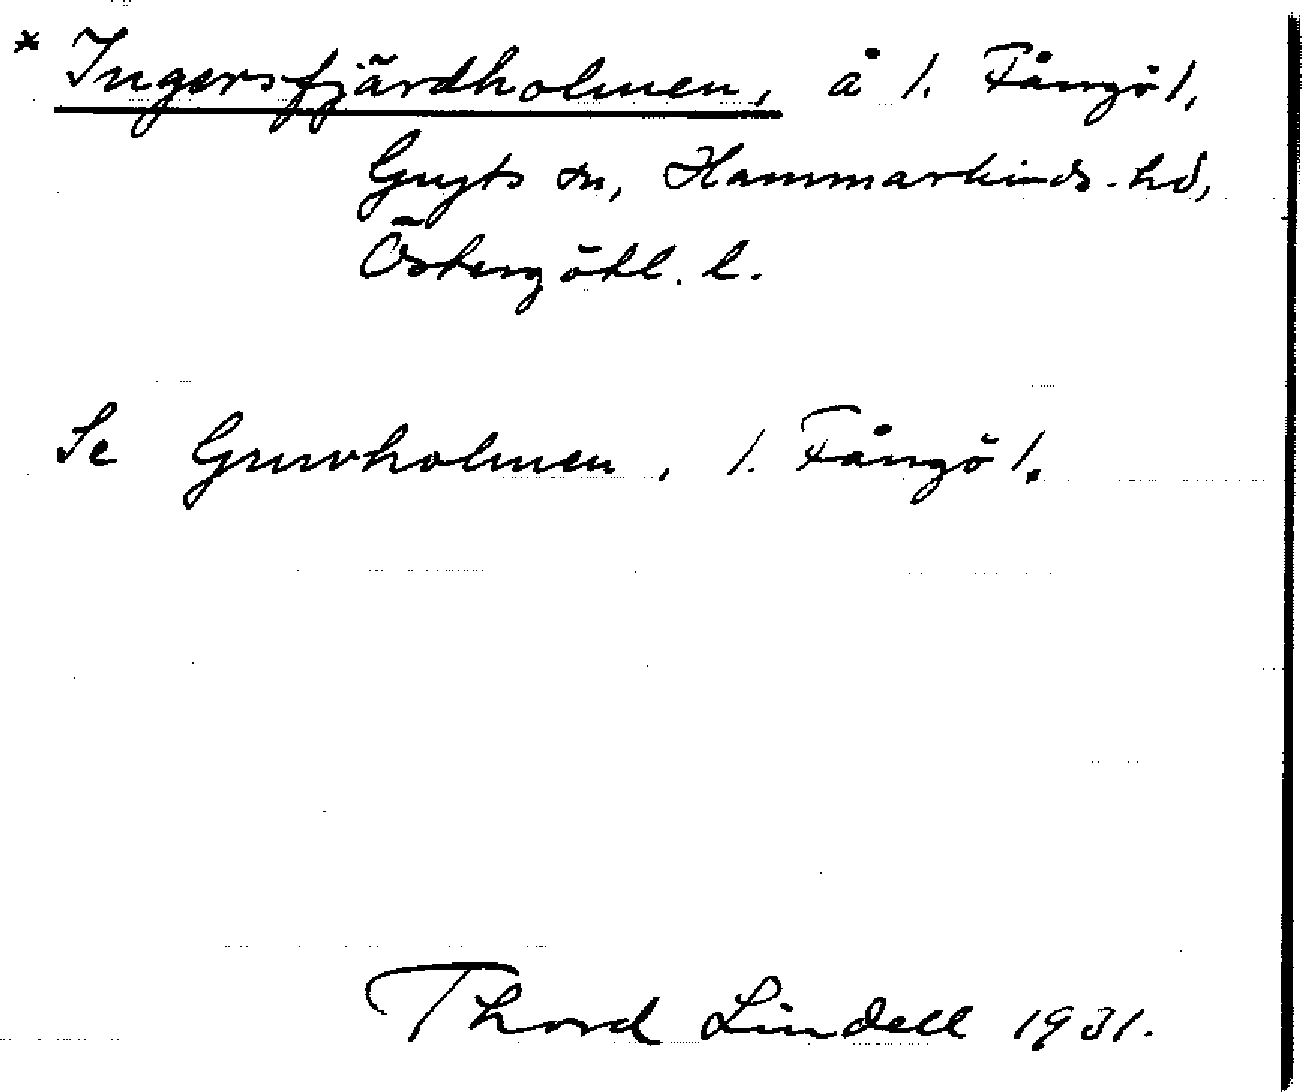 * Ingersfjärdholmen, å /. Fångö /,
Gryts sn, Hammarkinds hd,
Östergötl. l.
Se Gruvholmen, /. Fångö /.
Thord Lindell 1931.